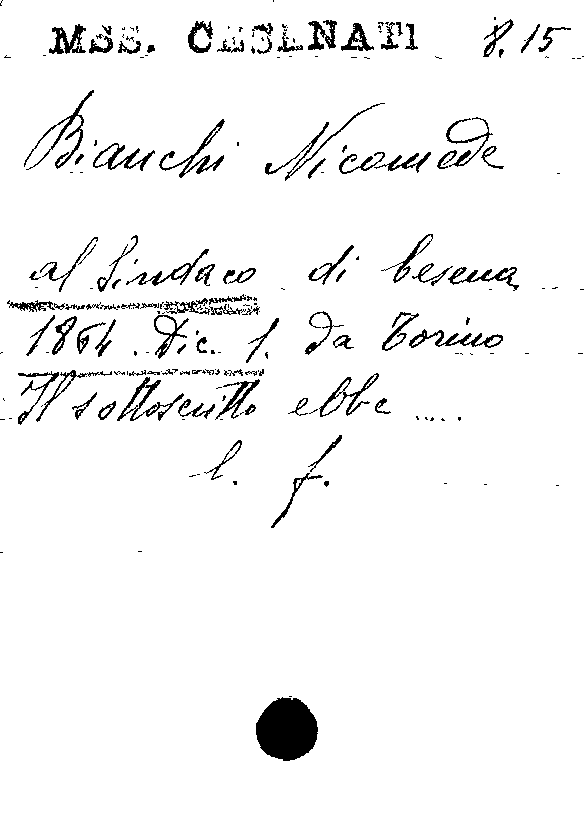 MSS. CESENATI 8.15
Bianchi Nicomede
al Sindaco di Cesena
1864. Dic. 1. da Torino
Il sottoscritto ebbe ....
l. f.